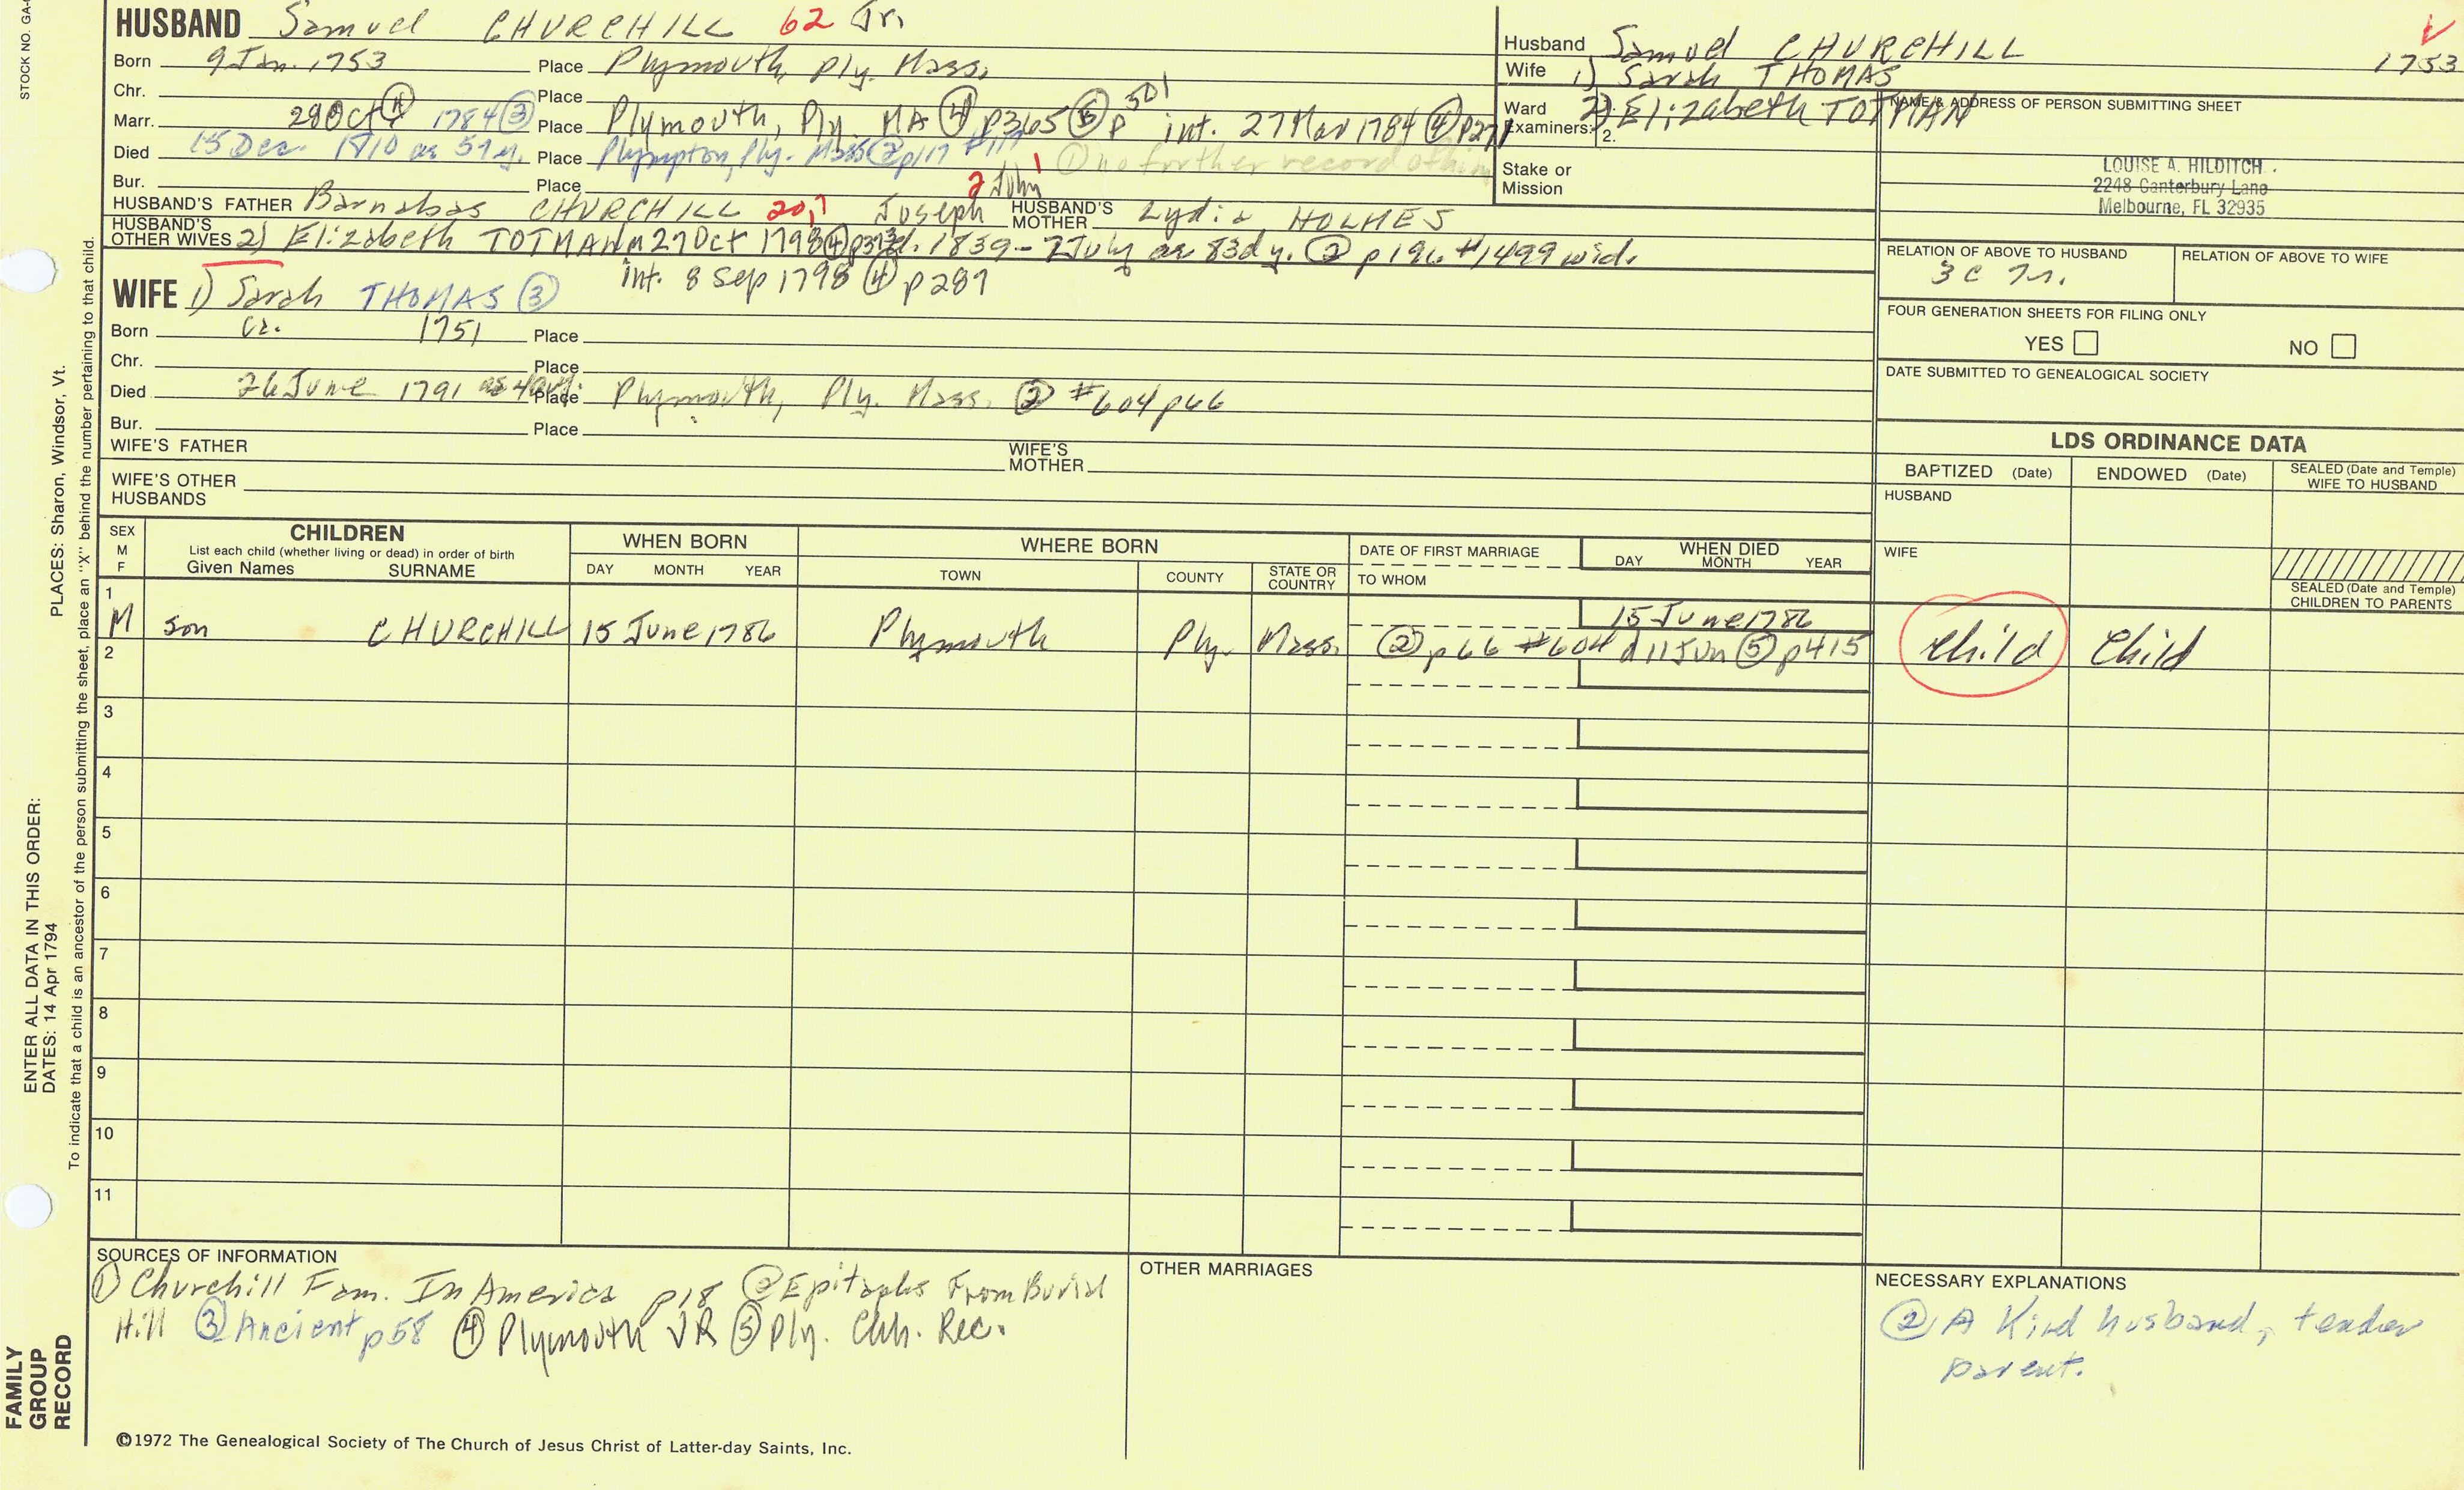 STOCK NO. GA-
HUSBAND Samuel CHURCHILL 62 Jr.
Born 9 Jan. 1753 Place Plymouth, Ply. Mass.
Chr. Place
Marr. 28 Oct ④ 1784 ③ Place Plymouth, Ply. MA ④ p365 ⑤ p 501 int. 27 Mar 1784 ④ p271
Died 15 Dec. 1810 ae 57 y. Place Plympton, Ply. Mass ② p117 ① no further record of him
Bur. Place
HUSBAND'S FATHER Barnabas CHURCHILL 20, 7 Joseph 2 John 1 HUSBAND'S MOTHER Lydia HOLMES
HUSBAND'S OTHER WIVES 2) Elizabeth TOTMAN m 27 Oct 1798 ④ p373 d. 1839 - 7 July ae 83d y. ② p196 #1499 wid.
int. 8 Sep 1798 ④ p289
WIFE 1) Sarah THOMAS ③
Born ca. 1751 Place
Chr. Place
Died 26 June 1791 ae 40 yr. Place Plymouth, Ply. Mass. ② #604 p66
Bur. Place
WIFE'S FATHER WIFE'S MOTHER
WIFE'S OTHER HUSBANDS
Husband Samuel CHURCHILL 1753
Wife 1) Sarah THOMAS
Ward 2) Elizabeth TOTMAN
Examiners: 2.
Stake or Mission
NAME & ADDRESS OF PERSON SUBMITTING SHEET
LOUISE A. HILDITCH
2248 Canterbury Lane
Melbourne, FL 32935
RELATION OF ABOVE TO HUSBAND RELATION OF ABOVE TO WIFE
3 C 7r.
FOUR GENERATION SHEETS FOR FILING ONLY
YES NO
DATE SUBMITTED TO GENEALOGICAL SOCIETY
LDS ORDINANCE DATA
BAPTIZED (Date) ENDOWED (Date) SEALED (Date and Temple) WIFE TO HUSBAND
HUSBAND
WIFE
SEALED (Date and Temple) CHILDREN TO PARENTS
SEX M F
CHILDREN
List each child (whether living or dead) in order of birth
Given Names SURNAME
WHEN BORN
DAY MONTH YEAR
WHERE BORN
TOWN COUNTY STATE OR COUNTRY
DATE OF FIRST MARRIAGE
TO WHOM
WHEN DIED
DAY MONTH YEAR
1
M son CHURCHILL 15 June 1786 Plymouth Ply. Mass. 15 June 1786
② p66 #604 d 11 Jun ⑤ p415 Child Child
2
3
4
5
6
7
8
9
10
11
SOURCES OF INFORMATION
① Churchill Fam. In America p18 ② Epitaphs From Burial
Hill ③ Ancient p58 ④ Plymouth VR ⑤ Ply. Chh. Rec.
OTHER MARRIAGES
NECESSARY EXPLANATIONS
② A Kind husband, tender
parent.
©1972 The Genealogical Society of The Church of Jesus Christ of Latter-day Saints, Inc.
PLACES: Sharon, Windsor, Vt.
To indicate that a child is an ancestor of the person submitting the sheet, place an "X" behind the number pertaining to that child.
ENTER ALL DATA IN THIS ORDER:
DATES: 14 Apr 1794
FAMILY
GROUP
RECORD